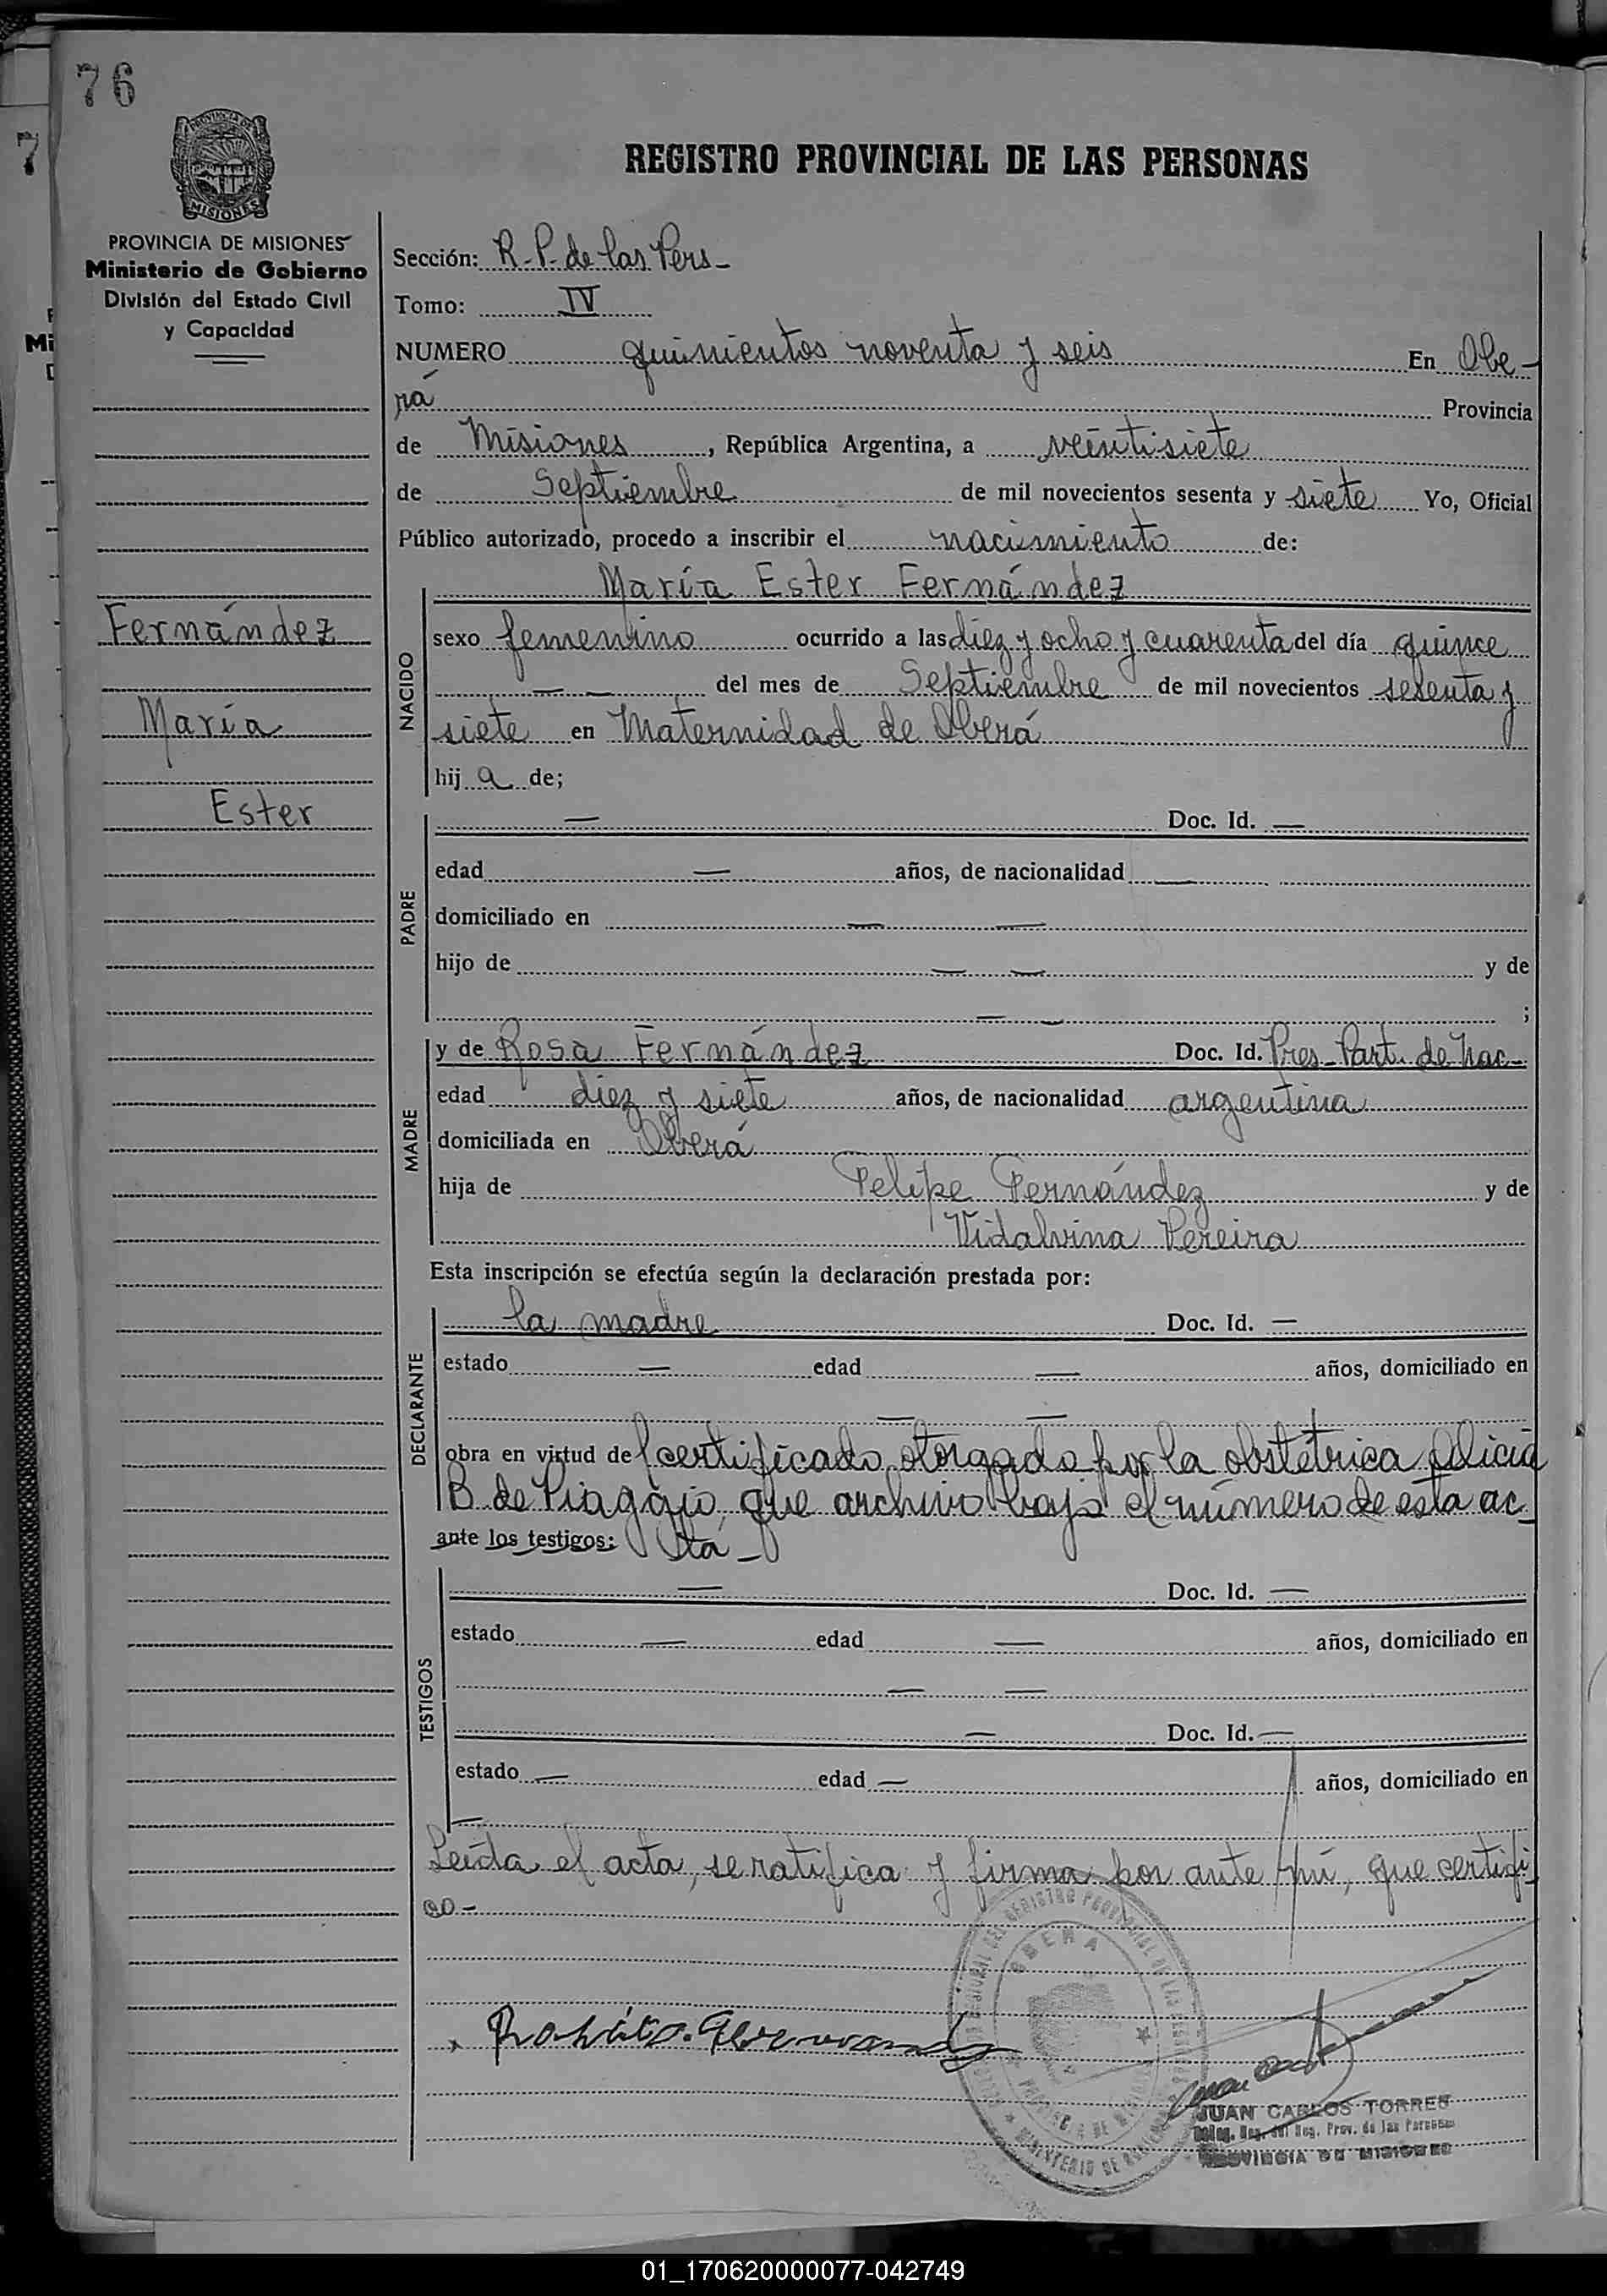 76
7
PROVINCIA DE
MISIONES
REGISTRO PROVINCIAL DE LAS PERSONAS
PROVINCIA DE MISIONES
Ministerio de Gobierno
División del Estado Civil
y Capacidad
Fernández
María
Ester
Sección: R.P. de las Pers-
Tomo: IV
NUMERO quinientos noventa y seis En Obe-
rá Provincia
de Misiones, República Argentina, a veintisiete
de Septiembre de mil novecientos sesenta y siete Yo, Oficial
Público autorizado, procedo a inscribir el nacimiento de:
María Ester Fernández
NACIDO
sexo femenino ocurrido a las diez y ocho y cuarenta del día quince
— — del mes de Septiembre de mil novecientos sesenta y
siete en Maternidad de Oberá
hij a de;
PADRE
— Doc. Id. —
edad — años, de nacionalidad —
domiciliado en — —
hijo de — — y de
— — ;
MADRE
y de Rosa Fernández Doc. Id. Pres. Part. de Nac-
edad diez y siete años, de nacionalidad argentina
domiciliada en Oberá
hija de Felipe Fernández y de
Vidalvina Pereira
Esta inscripción se efectúa según la declaración prestada por:
DECLARANTE
la madre Doc. Id. —
estado — edad — años, domiciliado en
— —
obra en virtud del certificado otorgado por la obstétrica Alicia
B de que archivo bajo el número de esta ac-
ante los testigos: ta -
TESTIGOS
— Doc. Id. —
estado — edad — años, domiciliado en
— —
— Doc. Id. —
estado — edad — años, domiciliado en
—
Leída el acta, se ratifica y firma por ante mí, que certifi-
co -
OBERA
JUAN CARLOS TORRES
Reg. Prov. de las Personas
PROVINCIA DE MISIONES
01_170620000077-042749